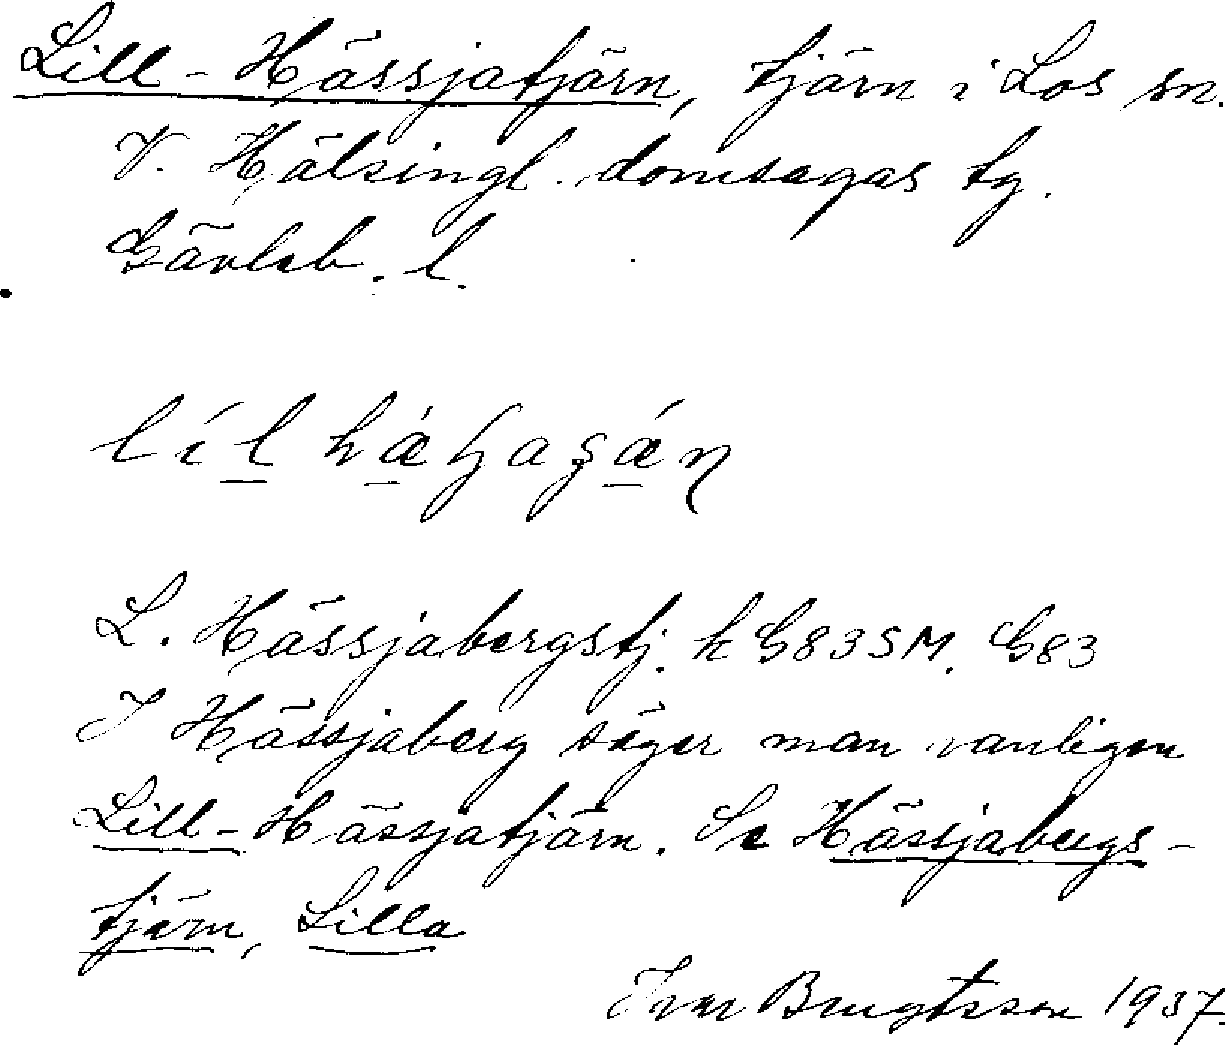 Lill-Hässjatjärn, tjärn i Los sn.
V. Hälsingl. domsagas tg.
Gävleb. l.
L. Hässjabergstj. k G83SM. G83
I Hässjaberg säger man vanligen
Lill-Hässjatjärn. Se Hässjabergs-
tjärn, Lilla
Ivar Bengtsson 1937.